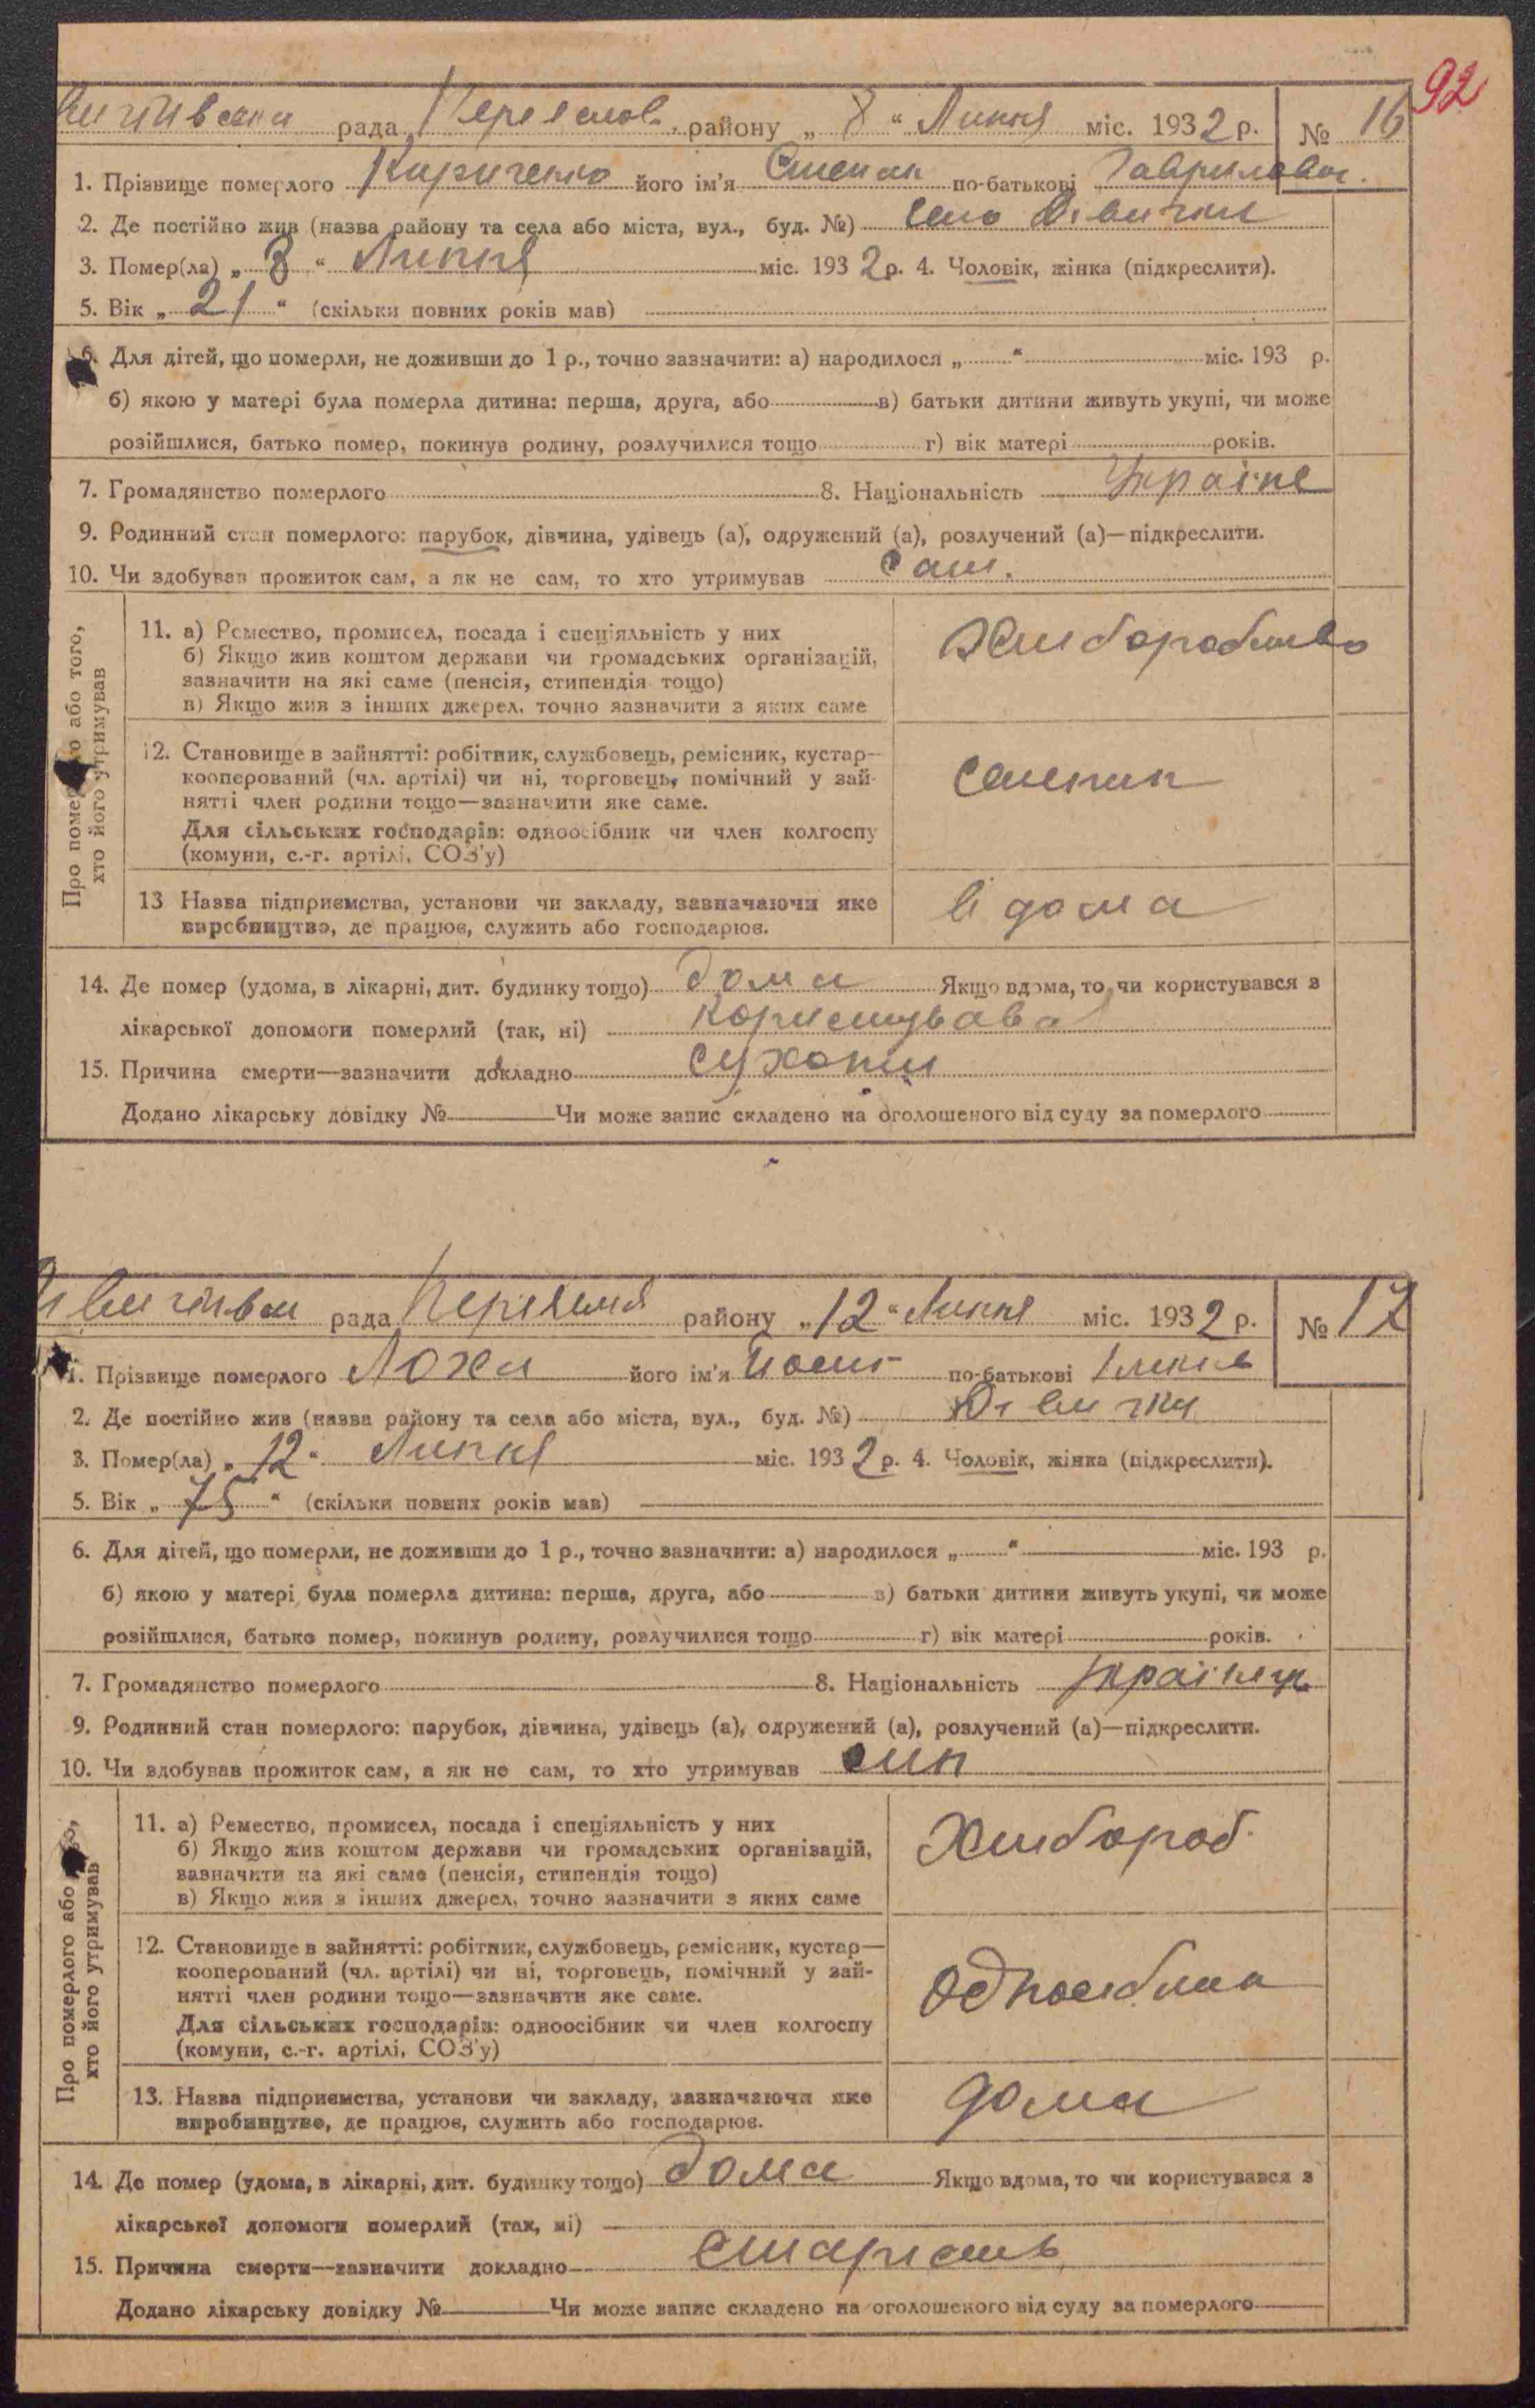 92
рада Переяслов. району „ 8 “ Липня міс. 1932 р. № 16
1. Прізвище померлого Кириченко його ім'я Степан по-батькові Гаврилович.
2. Де постійно жив (назва району та села або міста, вул., буд. №) село Дівички
3. Помер(ла) „ 8 “ Липня міс. 1932 р. 4. Чоловік, жінка (підкреслити).
5. Вік „ 21 “ (скільки повних років мав)
6. Для дітей, що померли, не доживши до 1 р., точно зазначити: а) народилося „ “ міс. 193 р.
б) якою у матері була померла дитина: перша, друга, або в) батьки дитини живуть укупі, чи може
розійшлися, батько помер, покинув родину, розлучилися тощо г) вік матері років.
7. Громадянство померлого 8. Національність Україне
9. Родинний стан померлого: парубок, дівчина, удівець (а), одружений (а), розлучений (а)—підкреслити.
10. Чи здобував прожиток сам, а як не сам, то хто утримував сам.
Про померлого або того,
хто його утримував
11. а) Ремество, промисел, посада і спеціяльність у них
б) Якщо жив коштом держави чи громадських організацій,
зазначити на які саме (пенсія, стипендія тощо)
в) Якщо жив з інших джерел, точно зазначити з яких саме
Хлиборобство
12. Становище в зайнятті: робітник, службовець, ремісник, кустар—
кооперований (чл. артілі) чи ні, торговець, помічний у зай-
нятті член родини тощо—зазначити яке саме.
Для сільських господарів: одноосібник чи член колгоспу
(комуни, с.-г. артілі, СОЗ'у)
13 Назва підприємства, установи чи закладу, зазначаючи яке
виробництво, де працює, служить або господарює.
в дома
14. Де помер (удома, в лікарні, дит. будинку тощо) дома Якщо вдома, то чи користувався з
лікарської допомоги померлий (так, ні) користував
15. Причина смерти—зазначити докладно сухоти
Додано лікарську довідку № Чи може запис складено на оголошеного від суду за померлого
рада району „ 12 “ Липня міс. 1932 р. № 17
1. Прізвище померлого Лоха його ім'я по-батькові
2. Де постійно жив (назва району та села або міста, вул., буд. №) Дівички
3. Помер(ла) „ 12 “ Липня міс. 1932 р. 4. Чоловік, жінка (підкреслити).
5. Вік „ 75 “ (скільки повних років мав)
6. Для дітей, що померли, не доживши до 1 р., точно зазначити: а) народилося „ “ міс. 193 р.
б) якою у матері була померла дитина: перша, друга, або в) батьки дитини живуть укупі, чи може
розійшлися, батько помер, покинув родину, розлучилися тощо г) вік матері років.
7. Громадянство померлого 8. Національність Українец
9. Родинний стан померлого: парубок, дівчина, удівець (а), одружений (а), розлучений (а)—підкреслити.
10. Чи здобував прожиток сам, а як не сам, то хто утримував син
Про померлого або того,
хто його утримував
11. а) Ремество, промисел, посада і спеціяльність у них
б) Якщо жив коштом держави чи громадських організацій,
зазначити на які саме (пенсія, стипендія тощо)
в) Якщо жив з інших джерел, точно зазначити з яких саме
Хлибороб.
12. Становище в зайнятті: робітник, службовець, ремісник, кустар—
кооперований (чл. артілі) чи ні, торговець, помічний у зай-
нятті член родини тощо—зазначити яке саме.
Для сільських господарів: одноосібник чи член колгоспу
(комуни, с.-г. артілі, СОЗ'у)
13. Назва підприємства, установи чи закладу, зазначаючи яке
виробництво, де працює, служить або господарює.
дома
14. Де помер (удома, в лікарні, дит. будинку тощо) дома Якщо вдома, то чи користувався з
лікарської допомоги померлий (так, ні)
15. Причина смерти—зазначити докладно старисть
Додано лікарську довідку № Чи може запис складено на оголошеного від суду за померлого